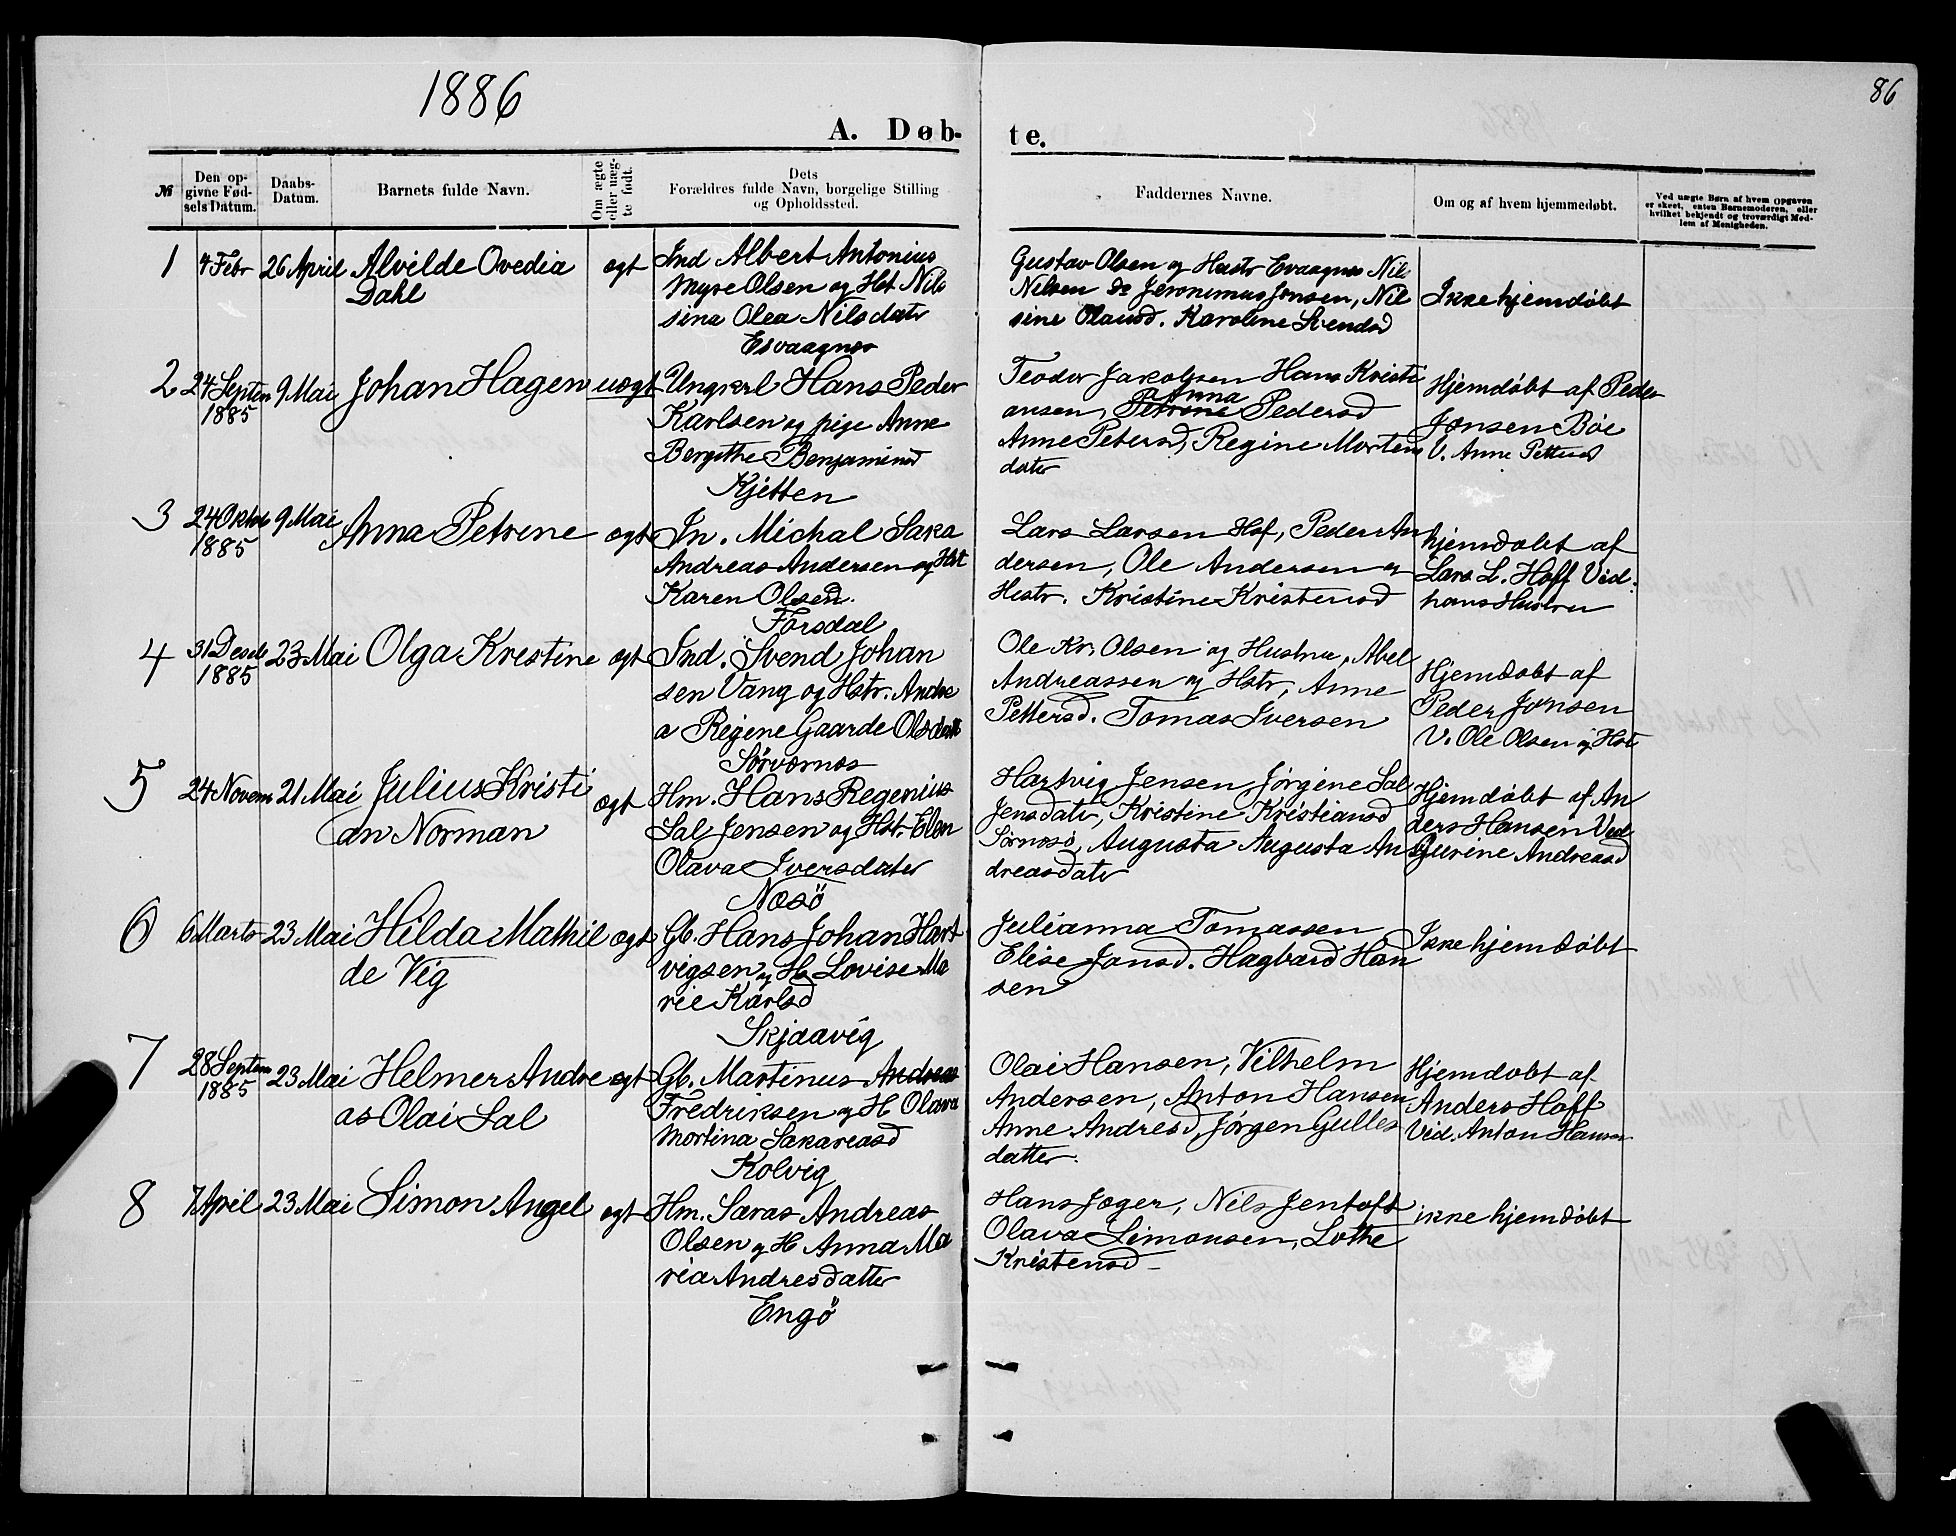 1886
86
A. Døb-
te.
№
Den op-
givne Fød-
selsDatum.
Daabs-
Datum.
Barnets fulde Navn.
Om ægte
eller uæg-
te født.
Dets
Forældres fulde Navn, borgelige Stilling
og Opholdssted.
Faddernes Navne.
Om og af hvem hjemmedøbt.
Ved uægte Børn af hvem Opgaven
er skeet, enten Barnemoderen, eller
hvilket bekjendt og troværdigt Med-
lem af Menigheden.
1
4 Febr
26 April
Alvilde Ovedia
Dahl
ægt
Ind Albert Antonius
Myre Olsen og Hst Nils
sina Olea Nilsdatr
Esvaagnes
Gustav Olsen og Hustr Evaagnes Nils
Nilsen Do Jeronimus Jonsen, Nil
sine Olausd. Karoline Svendsd
Ikke hjemdøbt
2
24 Septem
1885
9 Mai
Johan Hagen
uægt
Ungkrl Hans Peder
Karlsen og pige Anne
Bergithe Benjaminsd
Kjetten
Teodor Jakobsen Hans Kristi
Anna
ansen, Petrine Pedersd
Anne Petersd, Regine Mortens
dater
Hjemdøbt af Peder
Jonsen Böe
V. Anne Pettersd
3
24 Oktob
1885
9 Mai
Anna Petrine
ægt
In. Michal Saka
Andreas Andersen og Hst
Karen Olsend.
Forsdal
Lars Larsen Hof, Peder An
dersen, Ole Andersen og
Hustr. Kristine Kristensd
hjemdøbt af
Lars L. Hoff Vid.
hans Hustru
4
31 Deseb
1885
23 Mai
Olga Kristine
ægt
Ind. Svend Johan
sen Vang og Hstr. Andre
a Regine Gaarde Olsdatt
Sørværnes
Ole Kr. Olsen og Hustrue, Abel
Andreassen og Hstr, Anne
Pettersd. Tomas Iversen
Hjemdøbt af
Peder Jonsen
V. Ole Olsen og Hst
5
24 Novem
21 Mai
Julius Kristi
an Norman
ægt
Hm. Hans Regenius
Sal Jensen og Hst. Elen
Olava Iversdater
Næsö
Hartvig Jensen Jörgine Sal
Jensdatr, Kristine Kristiansd
Sörnesö, Augusta Augusta An
dreasdatr
Hjemdøbt af An
ders Hansen Ved
Gurine Andreasd
6
6 Marts
23 Mai
Hilda Mathil
de Vig
ægt
Gb. Hans Johan Hart
vigsen og H Lovise Ma
rie Karlsd
Skjaavig
Julianna Tomassen
Elise Jonsd. Hagbard Han
sen
Ikke hjemdøbt
7
28 Septem
1885
23 Mai
Helmer Andre
as Olai Sal
ægt
Gb. Martinus Andreas
Fredriksen og H Olava
Mortina Sakareasd
Kolvig
Olai Hansen, Vilhelm
Andersen, Anton Hansen
Anne Andresd, Jörgen Gulles
datter.
Hjemdøbt af
Anders Hoff
Vid. Anton Hansen
8
7 April
23 Mai
Simon Angel
ægt
Hm. Saras Andreas
Olsen og H Anna Ma
ria Andresdatter
Engö
Hans Joger, Nils Jentoft
Olava Simonsen, Lothe
Kristensd
ikke hjemdøbt